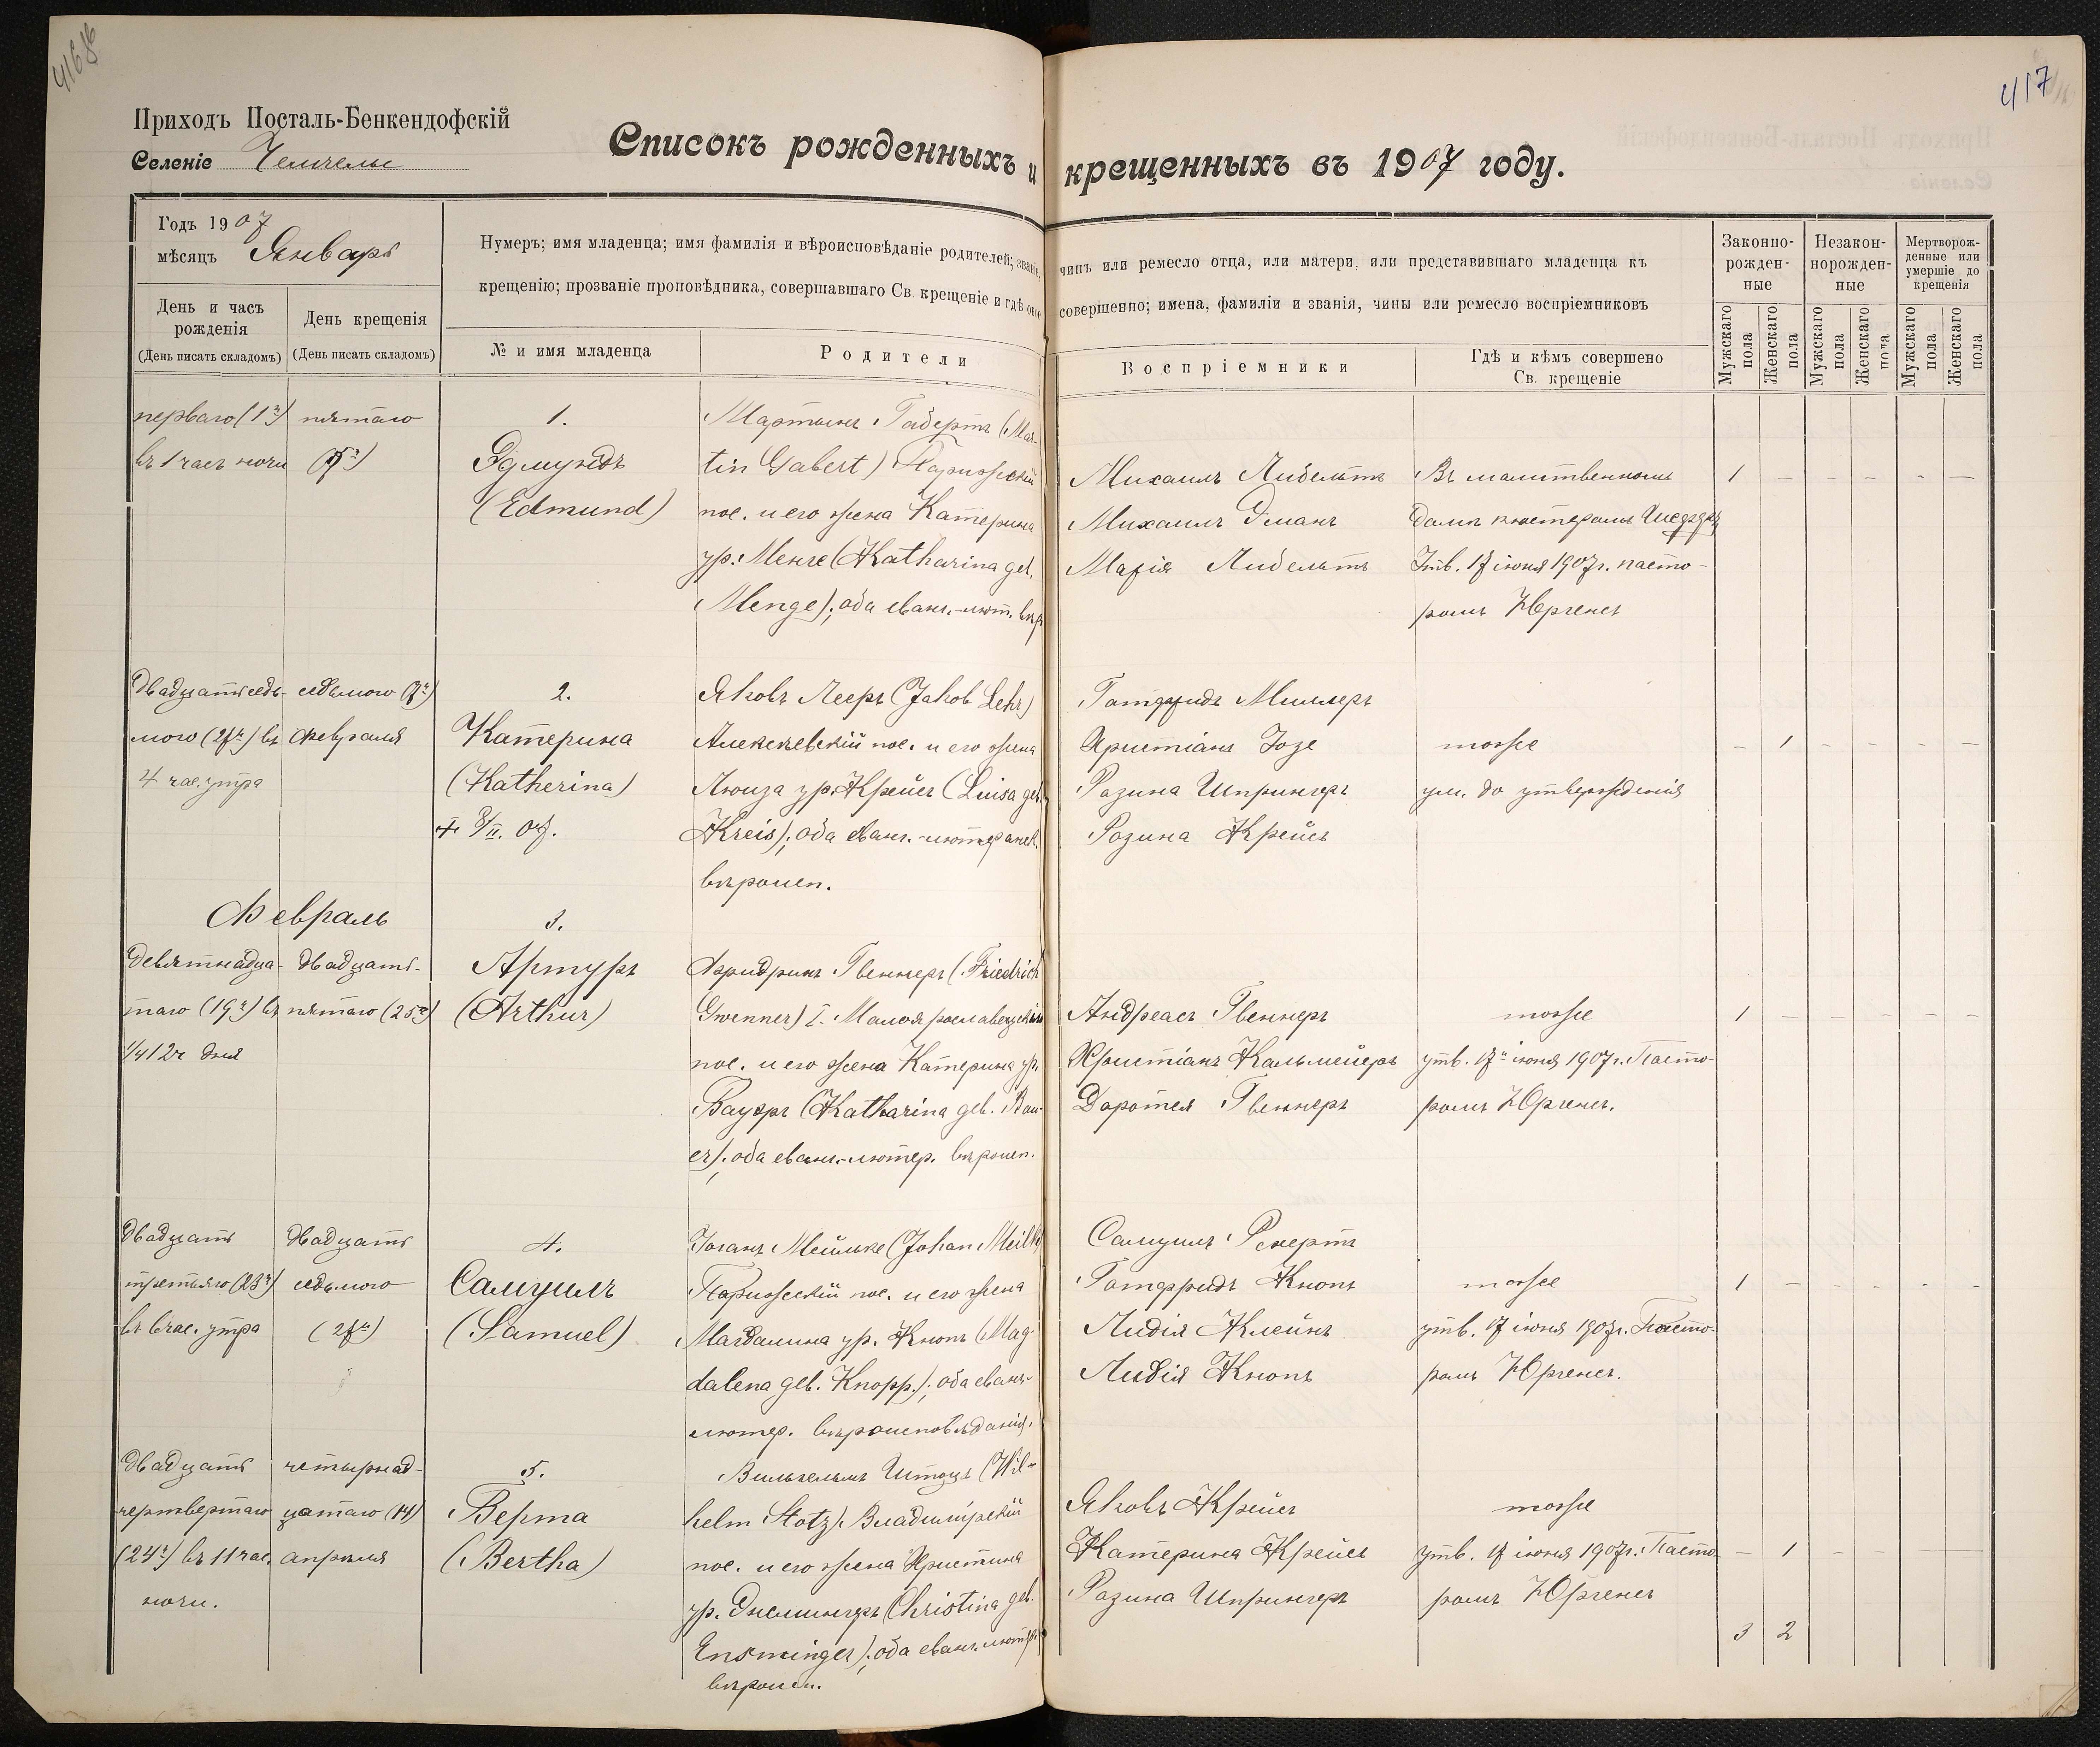 416об
417
Приходъ Посталь-Бенкендофскій
Селеніе Чемчелы
Списокъ рожденныхъ и крещенныхъ въ 1907 году.
Годъ 1907
мѣсяцъ Январь
Нумеръ; имя младенца; имя фамилія и вѣроисповѣданіе родителей; званіе, чинъ или ремесло отца, или матери, или представившаго младенца къ
крещенію; прозваніе проповѣдника, совершавшаго Св. крещеніе и гдѣ оное совершенно; имена, фамиліи и званія, чины или ремесло воспріемниковъ
День и часъ рожденія
(День писать складомъ)
День крещенія
(День писать складомъ)
№ и имя младенца
Родители
Воспріемники
Гдѣ и кѣмъ совершено
Св. крещеніе
Законно-
рожден-
ные
Незакон-
норожден-
ные
Мертворож-
денные или
умершіе до
крещенія
Мужскаго пола
Женскаго пола
Мужскаго пола
Женскаго пола
Мужскаго пола
Женскаго пола
перваго (1го)
въ 1 часъ ночи
пятаго
(5го)
1.
Эдмундъ
(Edmund)
Мартынъ Габертъ (Mar-
tin Gabert) Парижскій
пос. и его жена Катерина
ур. Менге (Katharina geb.
Menge); оба еванг.-лют. вѣр
Михаилъ Либельтъ
Михаилъ Эманъ
Марія Либельтъ
Въ молитвенномъ
домѣ кюстеромъ
Утв. 17 іюня 1907 г. пасто-
ромъ Юргенсъ
1 — — — — —
двадцать седь-
мого (27го) въ
4 час. утра
седьмого (7го)
февраля
2.
Катерина
(Katherina)
+ 8/II. 07.
Яковъ Лееръ (Jakob Lehr)
Алексѣевскій пос. и его жена
Люиза ур. Крейсъ (Luisa geb.
Kreis); оба еванг.-лютеранск.
вѣроисп.
Готфридъ Миллеръ
Христіанъ Зозе
Розина Шпрингеръ
Розина Крейсъ
тоже
ум. до утвержденія
— 1 — — — —
Февраль
девятнадца-
таго (19го) въ
1/4 12 ч дня
двадцать-
пятаго (25го)
3.
Артуръ
(Arthur)
Фридрихъ Гвеннеръ (Friedrich
Gwenner) I. Малоярославецкій
пос. и его жена Катерина ур.
Бауэръ (Katharina geb. Bau-
er); оба еванг.-лютер. вѣроисп.
Андреасъ Гвеннеръ
Христіанъ Кальмейеръ
Доротея Гвеннеръ
тоже
утв. 17го іюня 1907 г. Пасто-
ромъ Юргенсъ.
1 — — — — —
двадцать
третьяго (23го)
въ 6 час. утра
двадцать
седьмого
(27го)
4.
Самуилъ
(Samuel)
Іоганъ Мейльке (Johan Meilke)
Парижскій пос. и его жена
Магдалина ур. Кнопъ (Mag-
dalena geb. Knopp.); оба еванг-
лютер. вѣроисповѣданія.
Самуилъ Рекертъ
Готфридъ Кнопъ
Лидія Клейнъ
Лидія Кнопъ
тоже
утв. 17 іюня 1907 г. Пасто-
ромъ Юргенсъ.
1 — — — — —
двадцать
четвертаго
(24го) въ 11 час.
ночи.
четырнад-
цатаго (14)
апрѣля
5.
Берта
(Bertha)
Вильгельмъ Штоцъ (Wil-
helm Stotz). Владимірскій
пос. и его жена Христина
ур. Энсмингеръ (Christina geb.
Ensminger); оба еванг. лютер.
вѣроисп.
Яковъ Крейсъ
Катерина Крейсъ
Розина Шпрингеръ
тоже
утв. 17 іюня 1907 г. Пасто-
ромъ Юргенсъ
— 1 — — — —
3 2